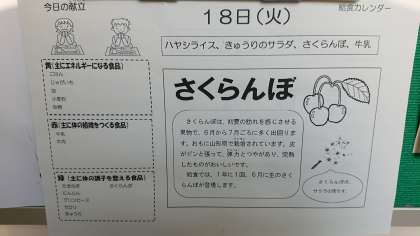 今日の献立
給食カレンダー
18日(火)
ハヤシライス、きゅうりのサラダ、さくらんぼ、牛乳
黄(主にエネルギーになる食品)
ごはん
じゃがいも
油
小麦粉
砂糖
赤(主に体の組織をつくる食品)
牛乳
牛肉
緑(主に体の調子を整える食品)
たまねぎ さくらんぼ
にんじん
グリンピース
セロリ
きゅうり
さくらんぼ
さくらんぼは、初夏の訪れを感じさせる
果物で、6月から7月ごろに多く出回りま
す。おもに山形県で栽培されています。皮
がピンと張って、弾力とつやがあり、完熟
したものがおいしいです。
給食では、1年に1回、6月に生のさく
らんぼが登場します。
さくらんぼの、